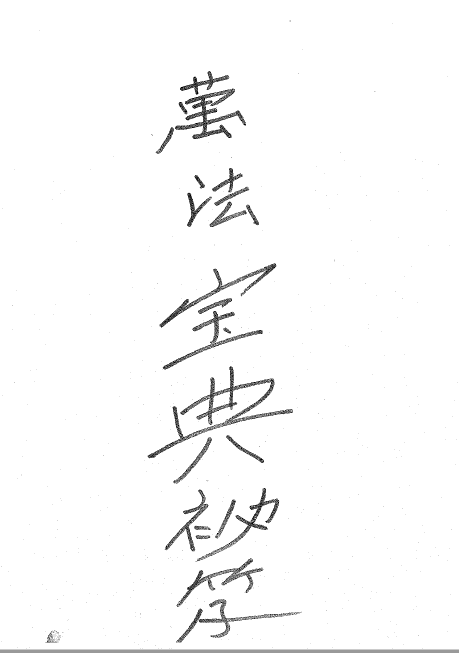 萬法宝典秘笈